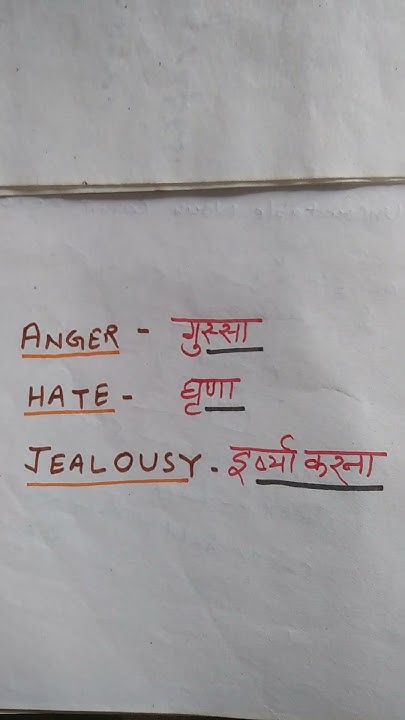 ANGER - गुस्सा
HATE - घृणा
JEALOUSY. इर्ष्या करना